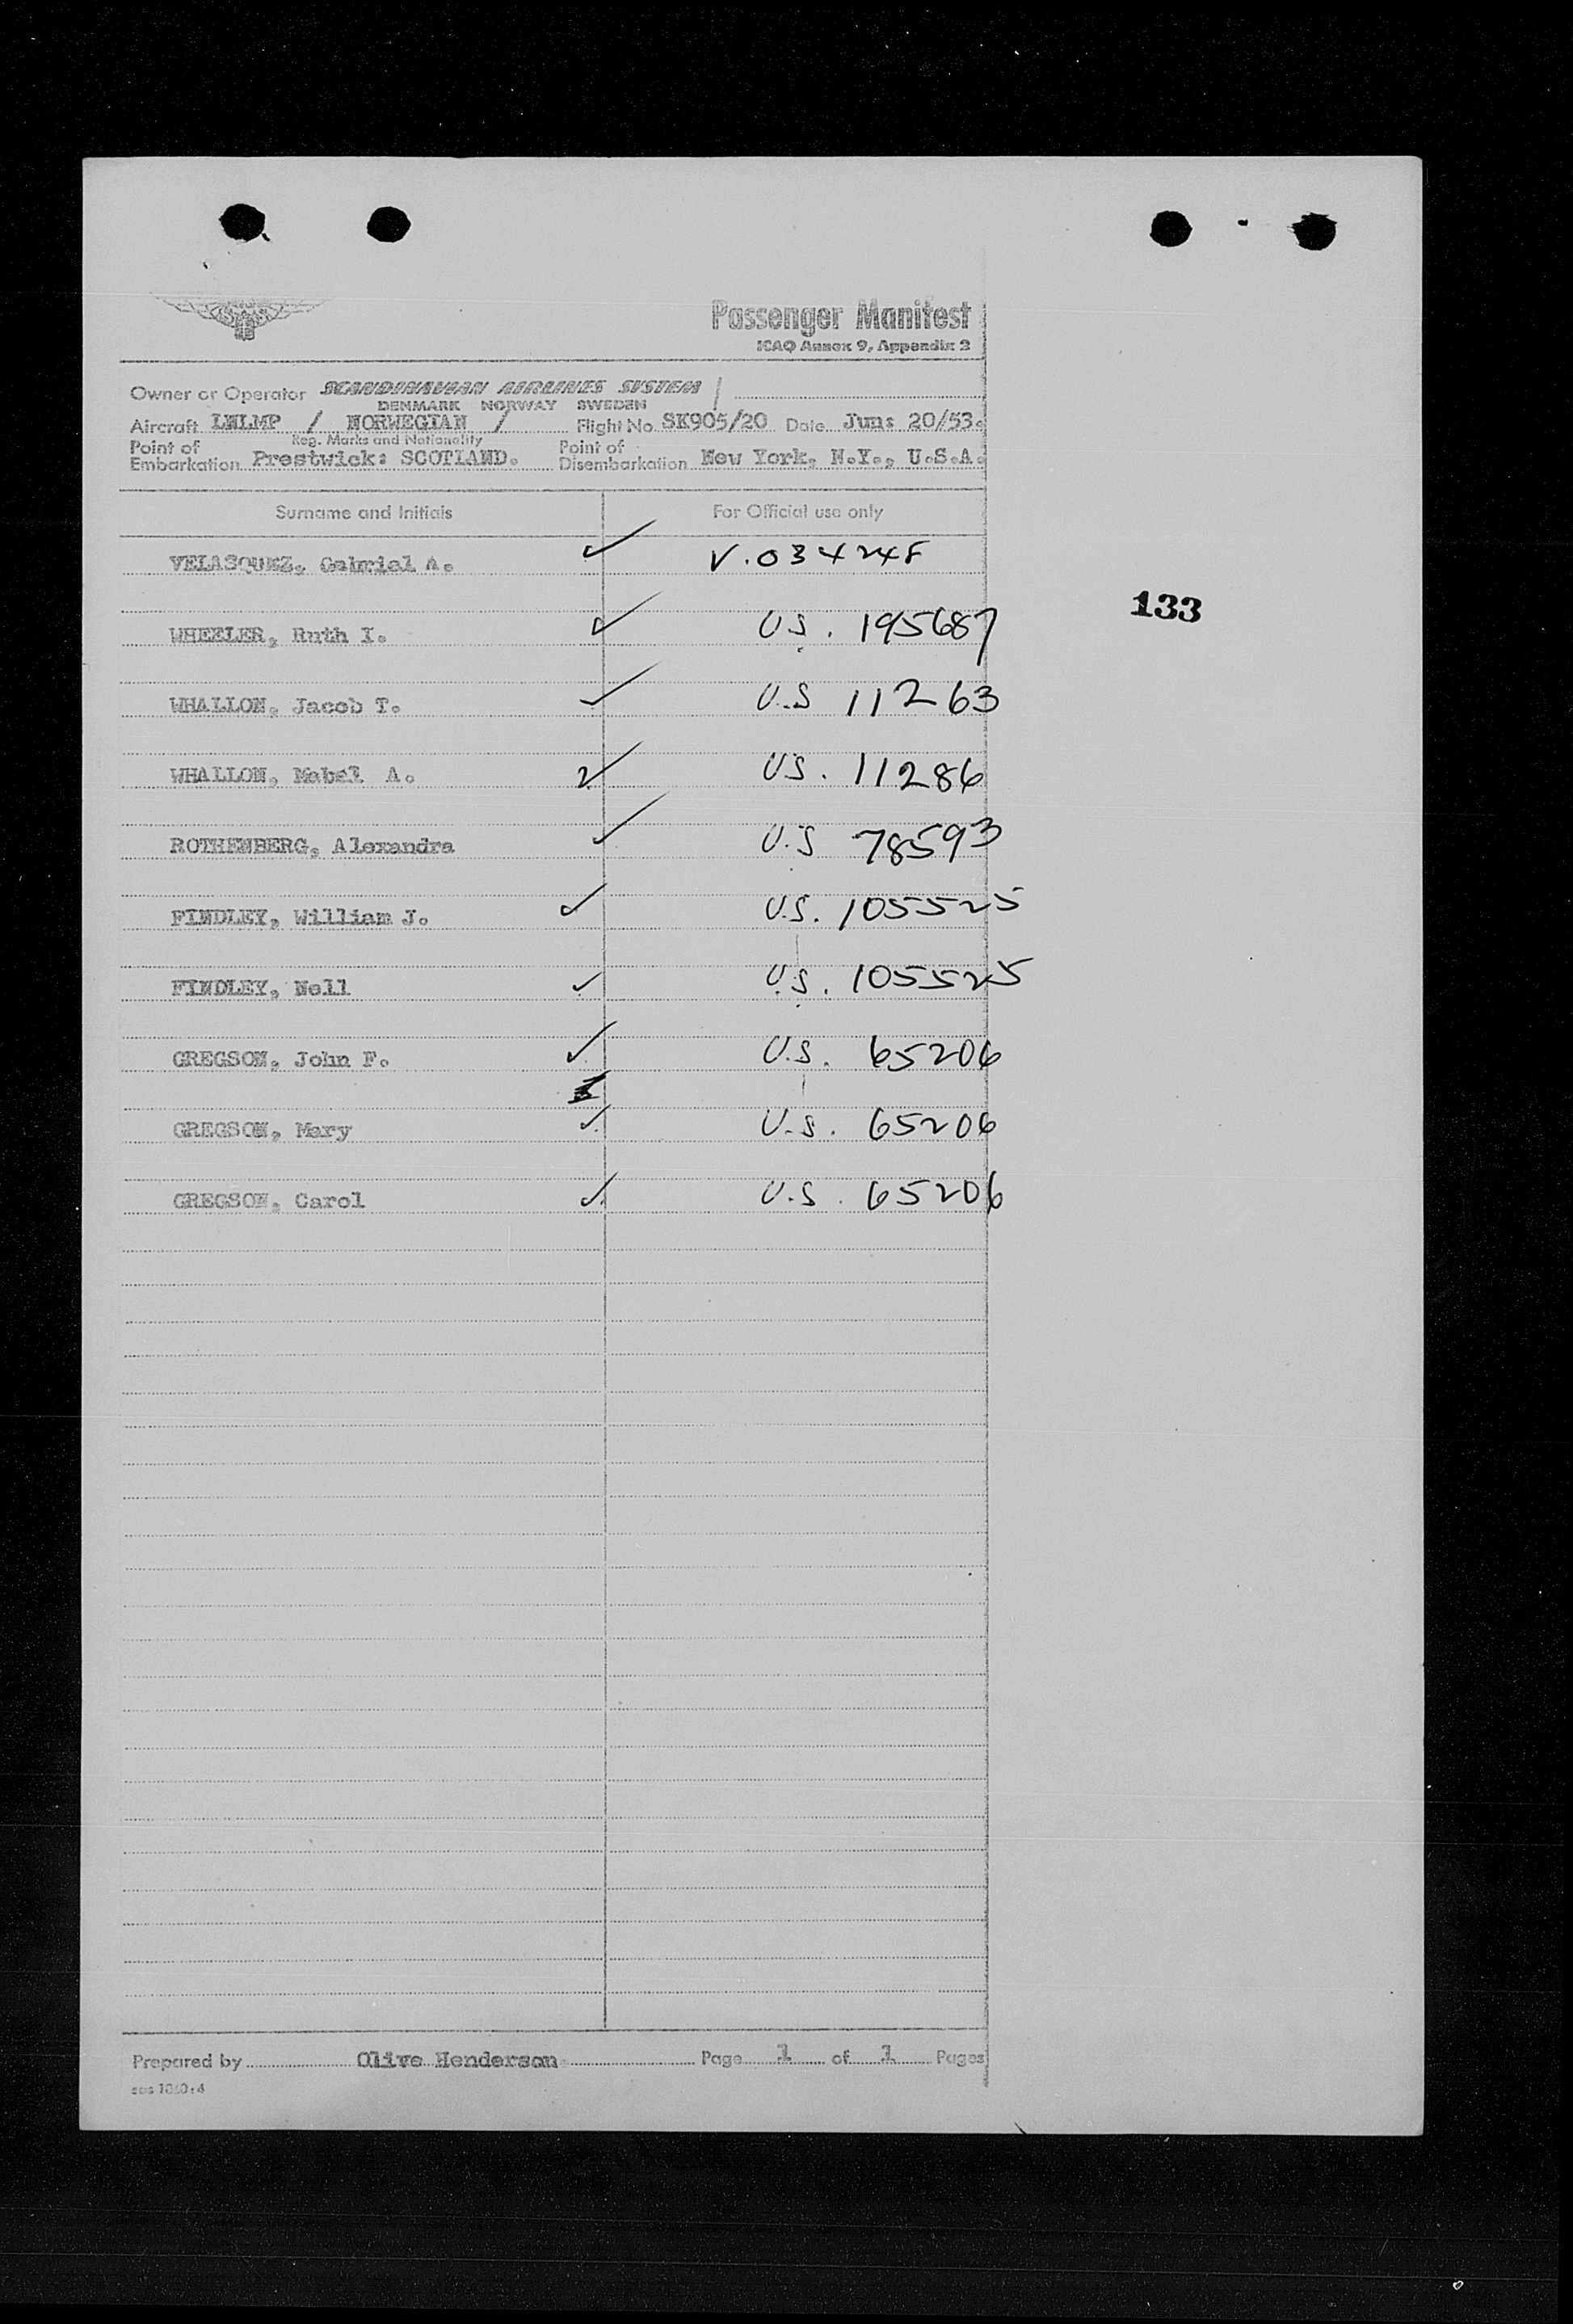 SAS
Passenger Manifest
ICAO Annex 9, Appendix 2
Owner or Operator SCANDINAVIAN AIRLINES SYSTEM
DENMARK NORWAY SWEDEN
Aircraft LNLMP / NORWEGIAN / Flight No. SK905/20 Date June 20/53.
Reg. Marks and Nationality
Point of Embarkation Prestwick: SCOTLAND. Point of Disembarkation New York, N.Y., U.S.A.
Surname and Initials For Official use only
VELASQUEZ, Gabriel A. V.
133
WHEELER, Ruth I. US. 195687
WHALLON, Jacob T. U.S 11263
WHALLON, Mabel A. US. 11286
ROTHENBERG, Alexandra U.S 78593
FINDLEY, William J. U.S. 105525
FINDLEY, Nell U.S. 105525
GREGSON, John F. U.S. 65206
GREGSON, Mary U.S. 65206
GREGSON, Carol U.S. 65206
Prepared by Olive Henderson Page 1 of 1 Pages